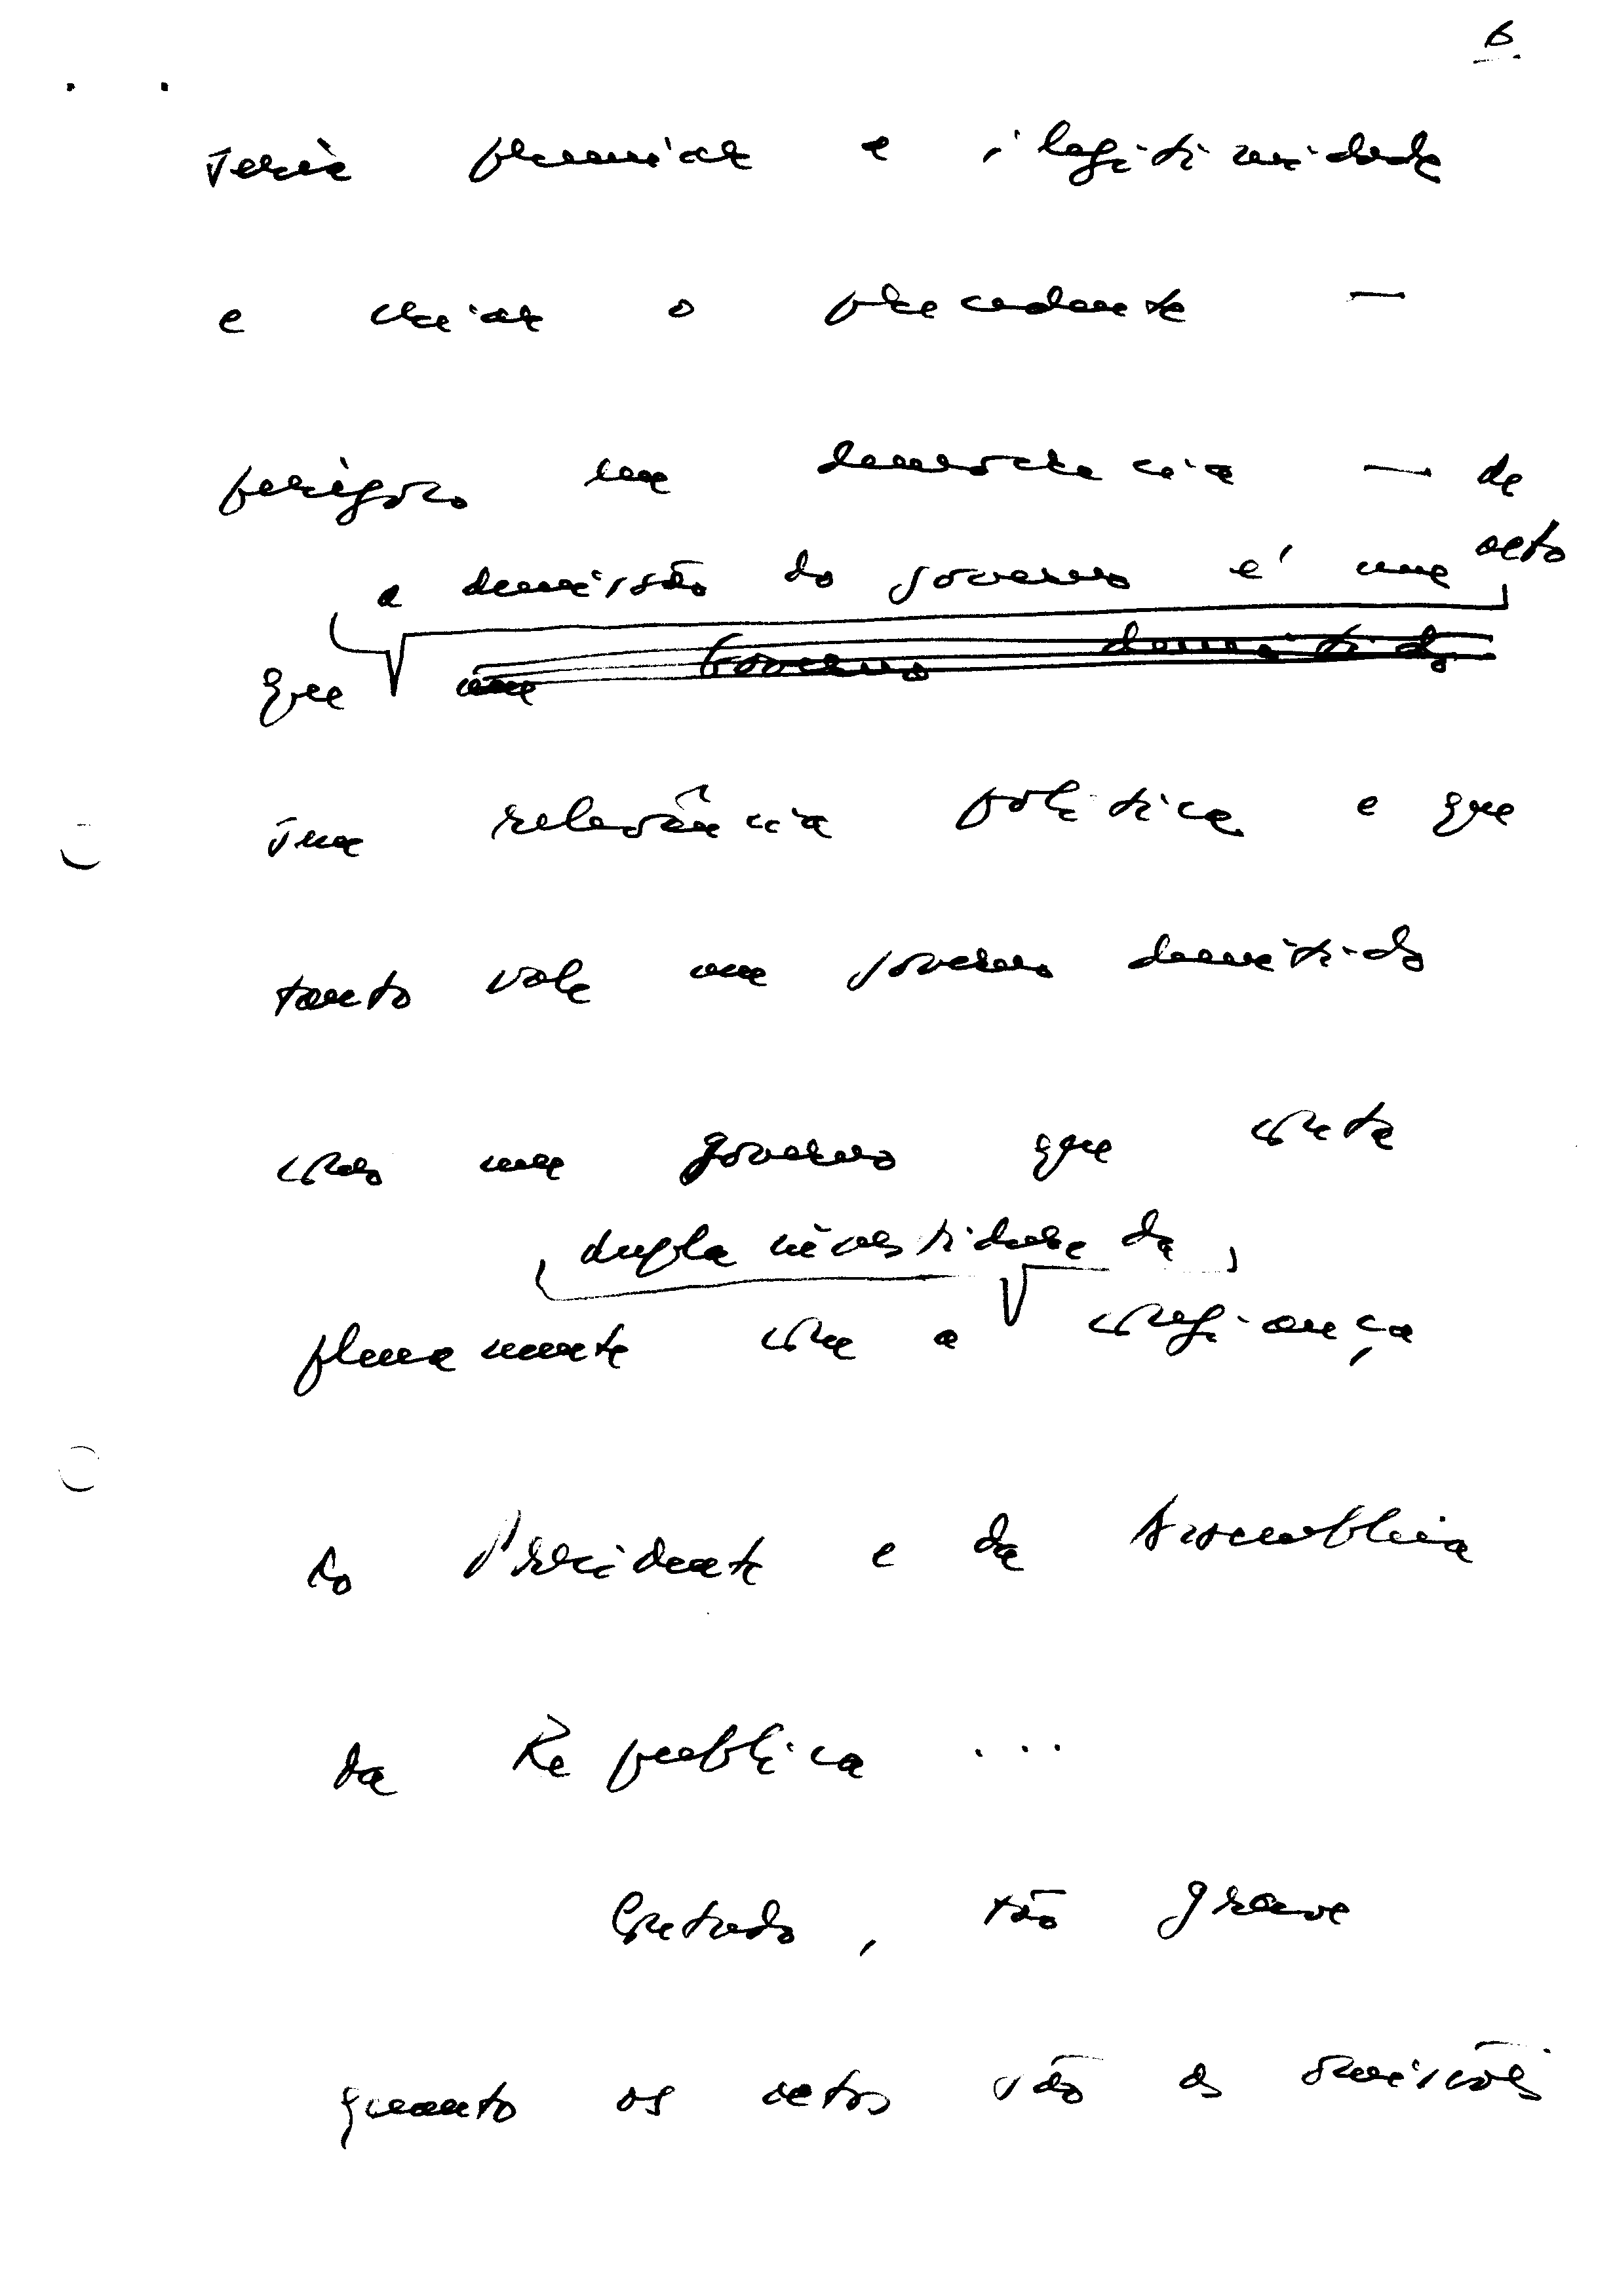 6.
seria premiar a ilegitimidade
e criar o precedente —
perigoso em democracia — de
a demissão do governo é um acto
que um Governo demitido
sem relevância política e que
tanto vale um governo demitido
como um governo que conta
dupla investidura da
plenamente com a confiança
do Presidente e da Assembleia
da República ...
Contudo, tão grave
quanto os actos são as omissões